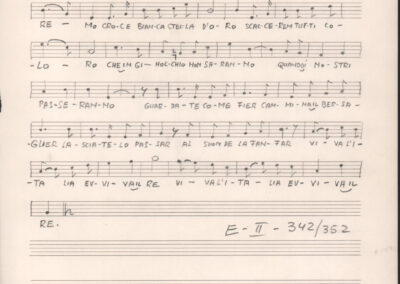 RE - MO CRO-CE BIAN-CA STEL-LA D'O-RO SCAC-CE-REM TUT-TI CO-
-LO - RO CHE IN GI-NOC-CHIO NON SA-RAN-NO QUANDO I NO-STRI
PAS-SE-RAN-NO GUAR-DA-TE CO-ME FIER CAM-MI-NA IL BER-SA-
-GLIER LA-SCIA-TE-LO PAS-SAR AL SUON DE LA FAN-FAR VI-VA L'I-
-TA LIA EV-VI-VA IL RE VI-VA L'I-TA-LIA EV-VI-VA IL
RE. E-II-342/352